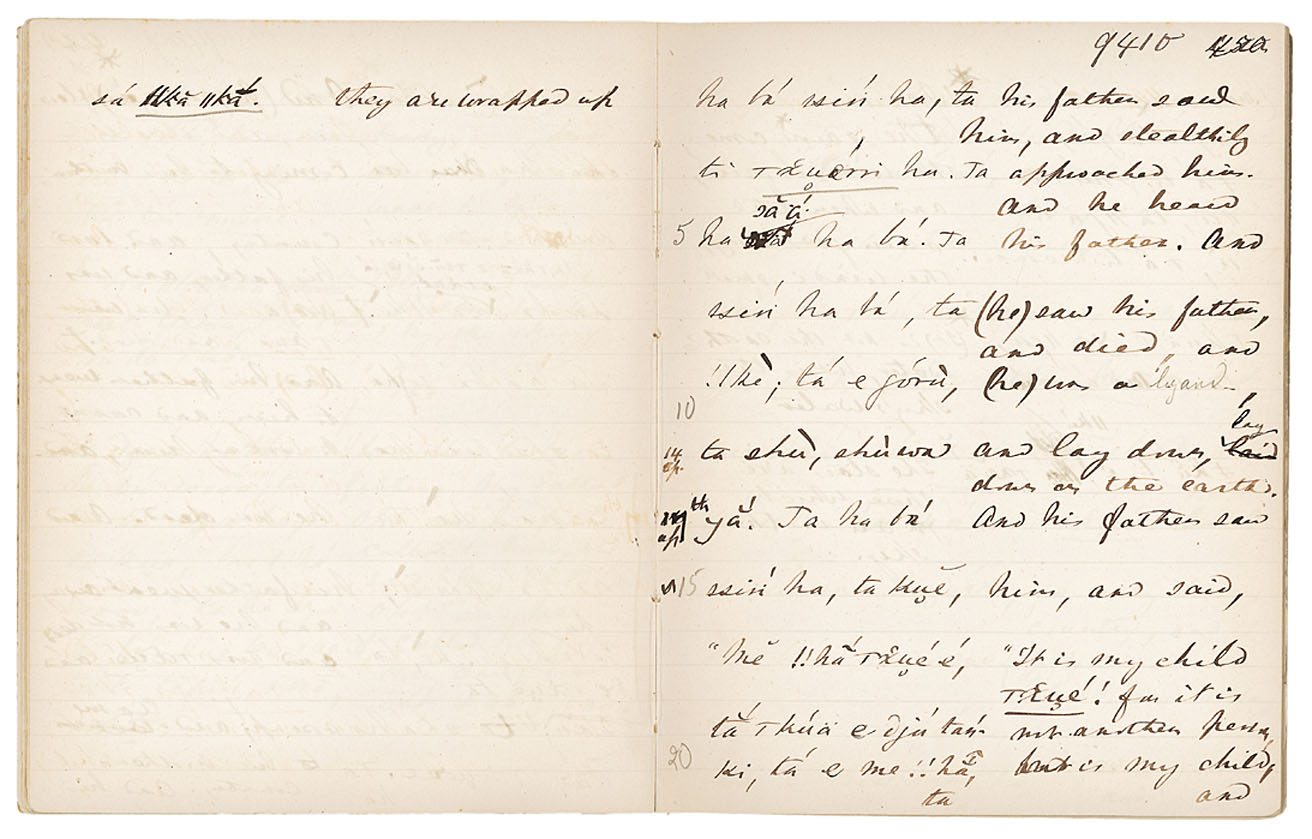 sá ǁkā ǁkǎ. they are wrapped up
9410
ha bá ssiń ha, ta his father saw
him, and stealthily
ti ha. Ta approached him.
sā á. and he heard
5 ha ha bá. Ta his father. And
ssiń ha bá, ta (he) saw his father,
and died, and
!kè; tá e górù, (he) was a lizard
10
ta shù, shùwa and lay down, lay
14 down on the earth.
yǎ. Ta ha bá And his father saw
15 ssiń ha, ta kue, him, and said,
"Mĕ "It is my child
! for it is
e djú tań- not another person,
20 ki, tá e me but is my child,
ta and